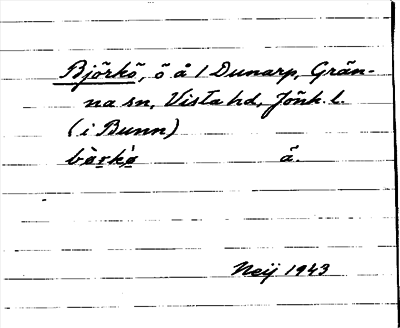 Björkö, ö å 1 Dunarp, Grän-
na sn, Vista hd, Jönk. l.
(i Bunn)
bø̀rkø̀ å.
Neij 1943